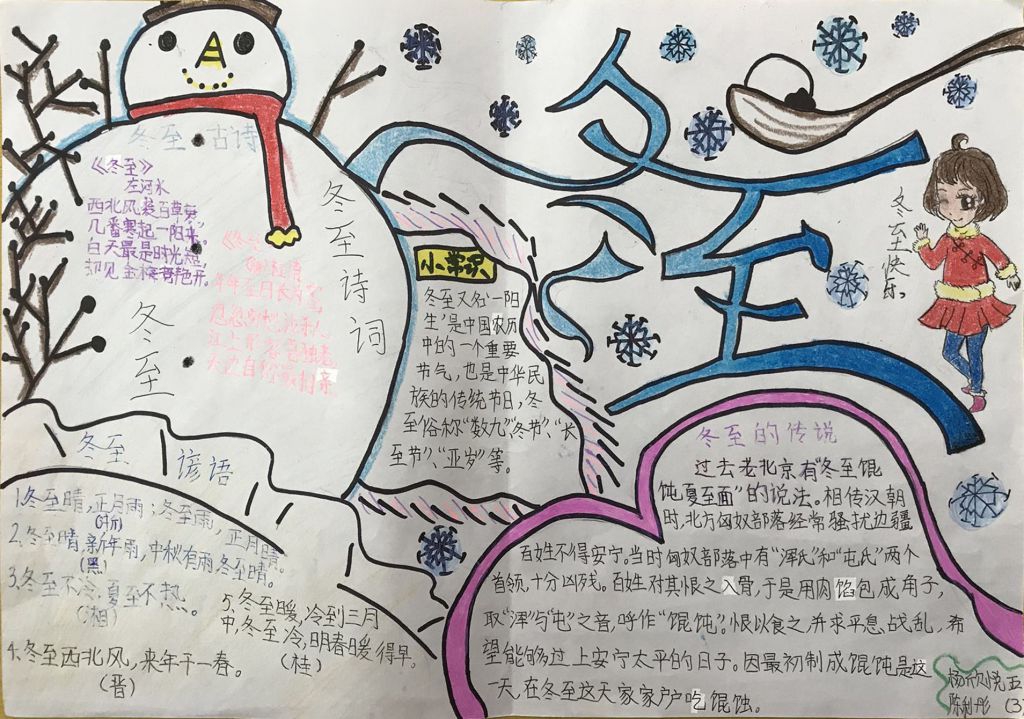 冬至·古诗
《冬至》
左河水
西北风袭百草
几番寒起一阳来。
白天最是时光短,
却见金梅吾艳开。
冬至诗词
年年至月长为客,
江上形容吾独老
天边自相亲
冬至
小常识
冬至又名‘一阳
生’是中国农历
中的一个重要
节气,也是中华民
族的传统节日,冬
至俗称“数九”、“冬节”、“长
至节”、“亚岁”等。
冬至
冬至快乐。
冬至 谚语
1.冬至晴,正月雨;冬至雨,正月晴。
2.冬至晴,新年雨,中秋有雨冬至晴。
(黑)
3.冬至不冷,夏至不热。
(湘)
4.冬至西北风,来年干一春。
(晋)
5.冬至暖,冷到三月
中,冬至冷,明春暖得早。
(桂)
冬至的传说
过去老北京有“冬至馄
饨夏至面”的说法。相传汉朝
时,北方匈奴部落经常骚扰边疆
百姓不得安宁。当时匈奴部落中有“浑氏”和“屯氏”两个
首领,十分凶残。百姓对其恨之入骨,于是用肉馅包成角子,
取“浑”与“屯”之音,呼作“馄饨”。恨以食之,并求平息战乱,希
望能够过上安宁太平的日子。因最初制成馄饨是这
一天,在冬至这天家家户户吃馄蚀。
杨欣悦 五
陈利彤 (3